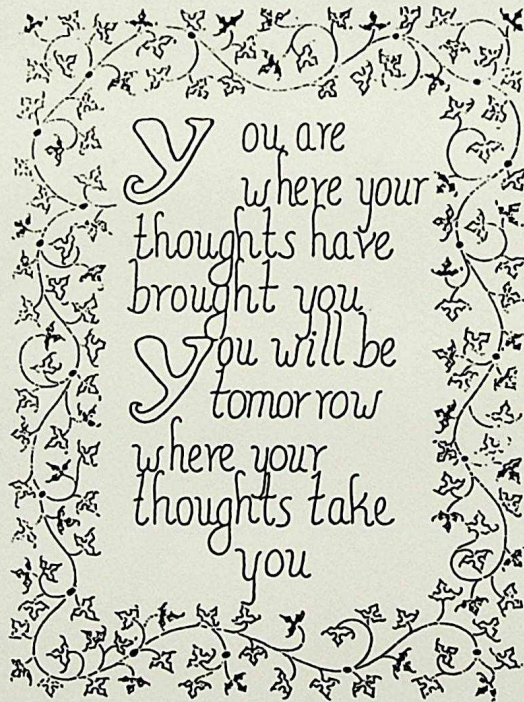 You are
where your
thoughts have
brought you
You will be
tomorrow
where your
thoughts take
you